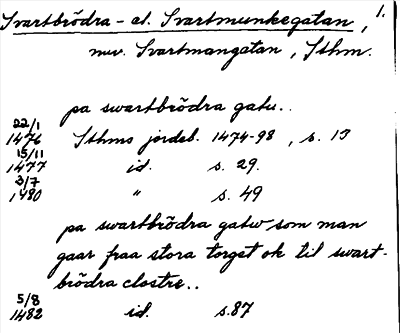 Svartbrödra- el. Svartmunkegatan, 1.
nuv. Svartmangatan, Sthm.
pa swartbrödra gatu..
22/1
1476 Sthms jordeb. 1474-98, s. 13
15/11
1477 id. s. 29.
3/7
1480 " s. 49
pa swartbrödra gatw som man
gaar fraa stora torget ok til swart-
brödra clostre..
5/8
1482 id. s.87